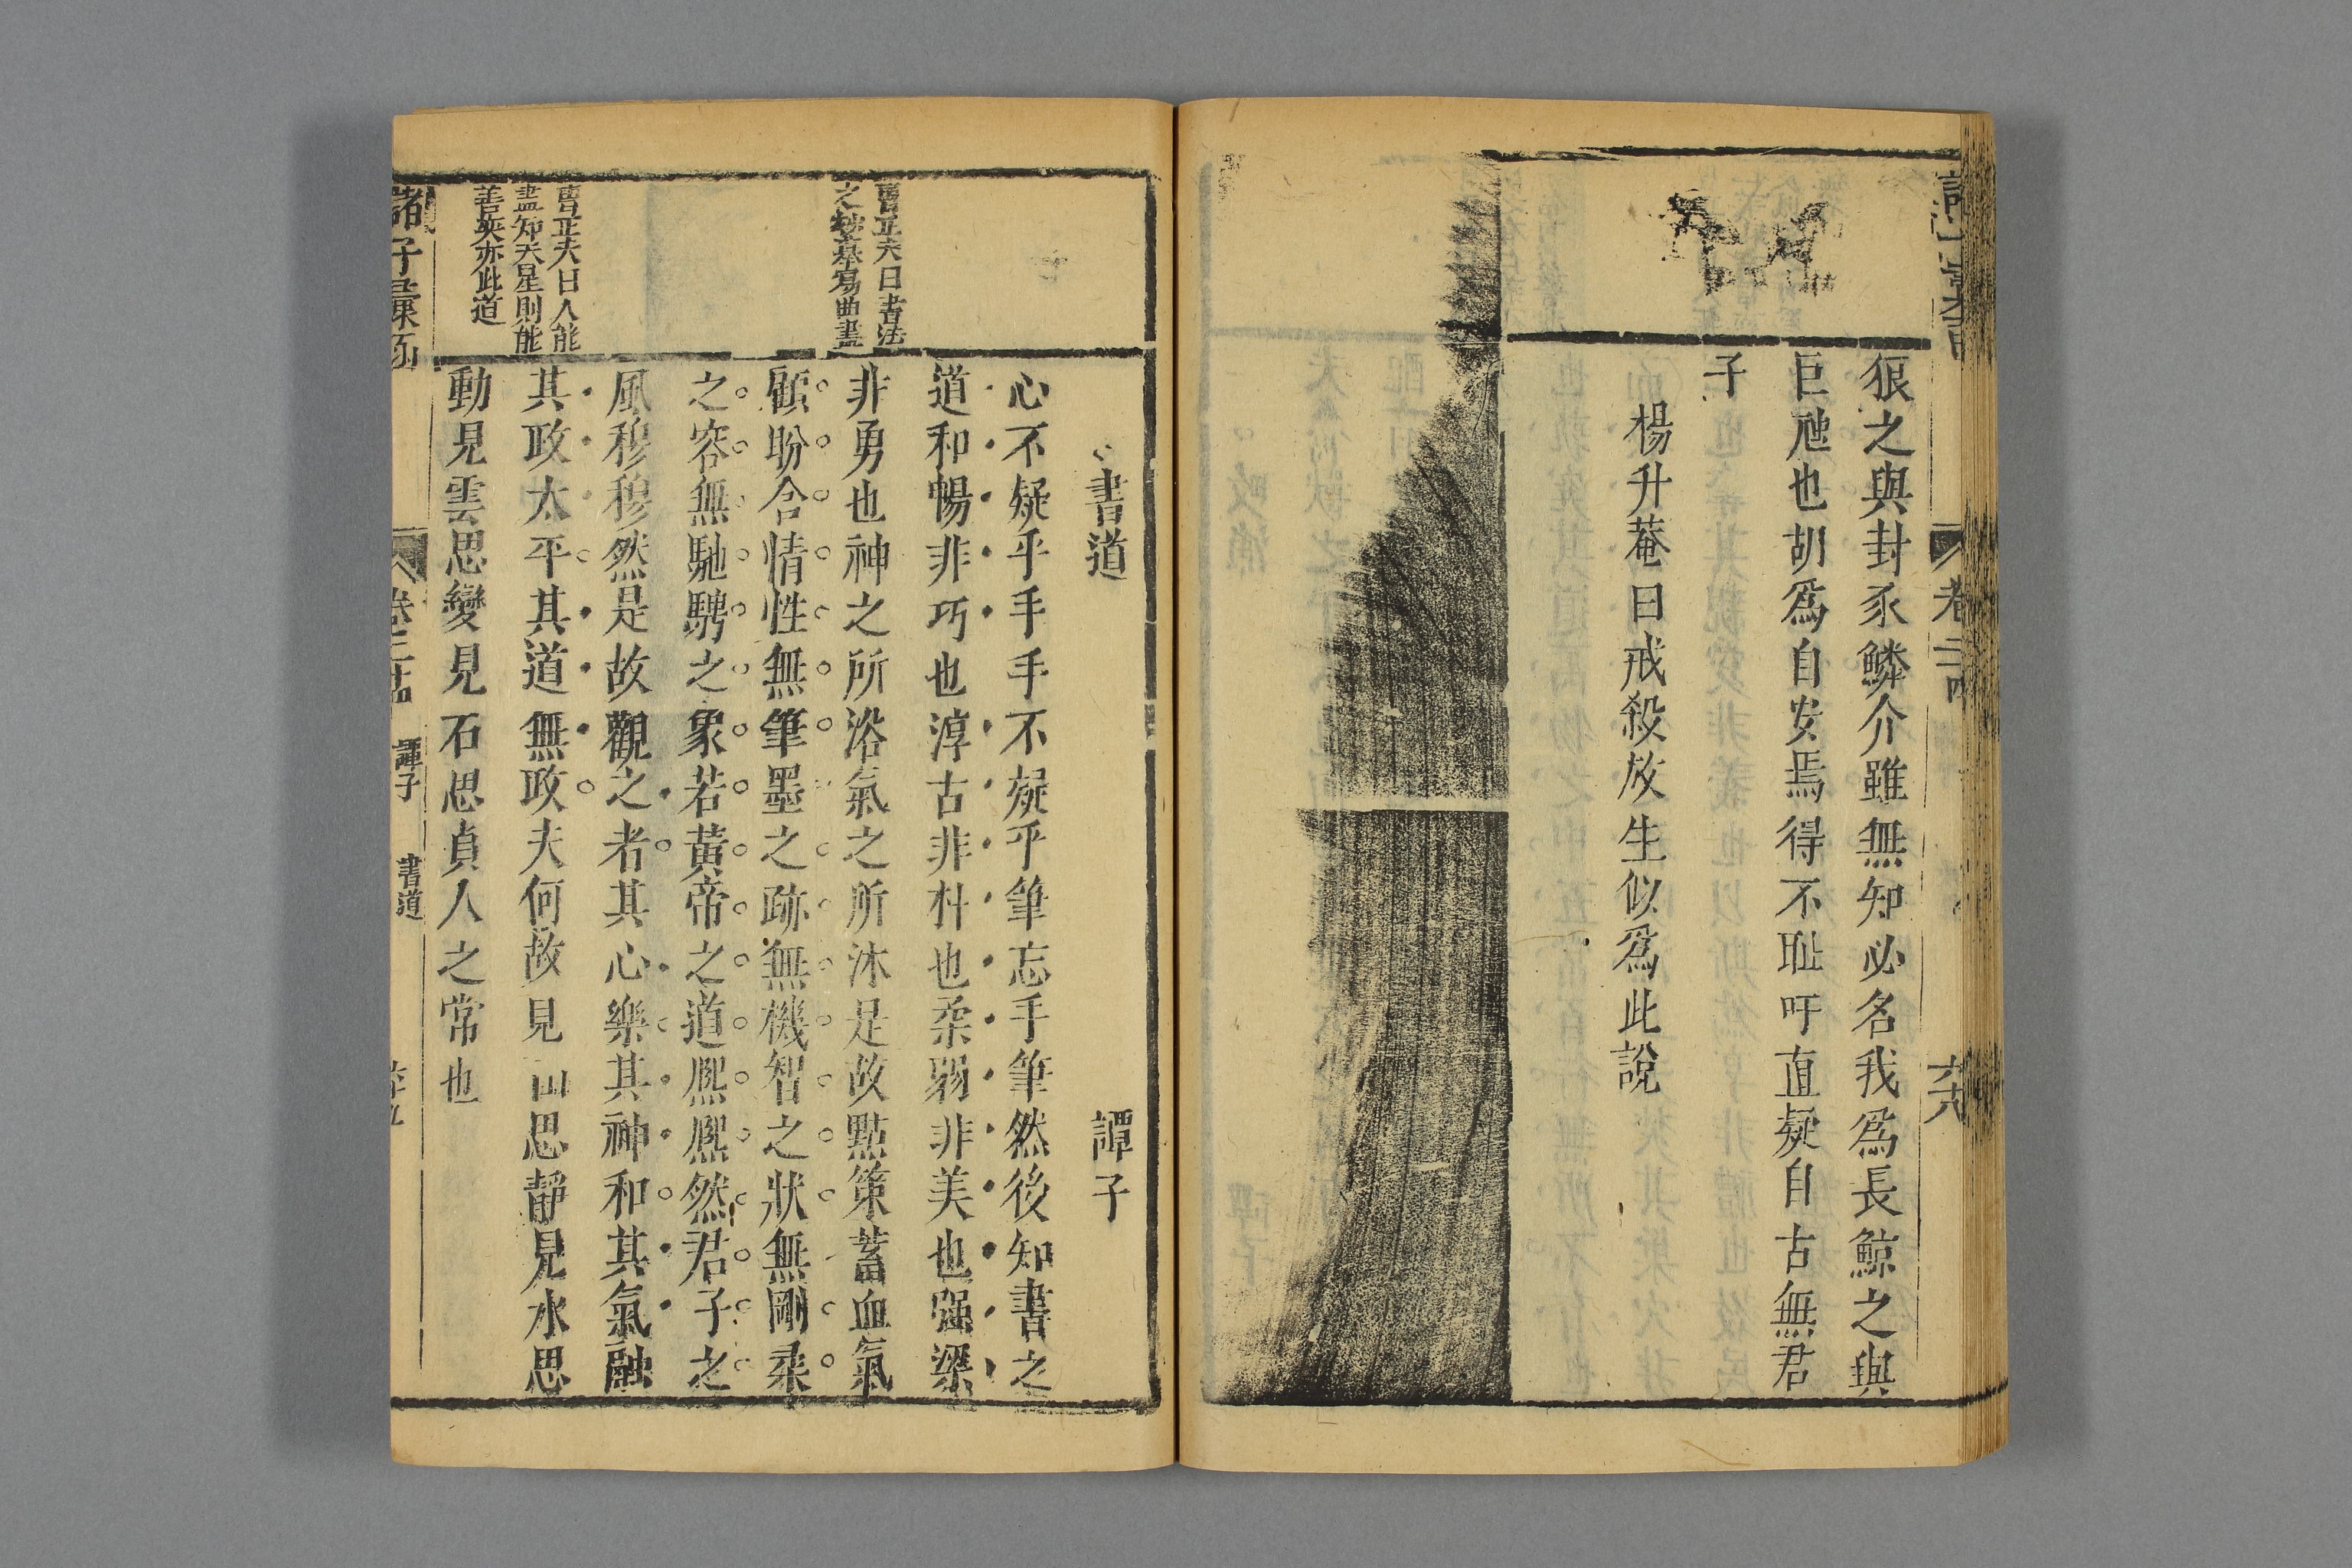 狼之與封豕鱗介雖無知必名我爲長鯨之與
巨虺也胡爲自安焉得不耻吁直疑自古無君
子
楊升菴曰戒殺放生似爲此說
卷二十四
六十八
書道
譚子
心不疑乎手手不疑乎筆忘手筆然後知書之
道和暢非巧也淳古非朴也柔弱非美也强梁
非勇也神之所浴氣之所沐是故點策蓄血氣
顧盼含情性無筆墨之跡無機智之狀無剛柔
之容無馳騁之象若黃帝之道熙熙然君子之
風穆穆然是故觀之者其心樂其神和其氣融
其政太平其道無政夫何故見山思靜見水思
動見雲思變見石思貞人之常也
曹正夫曰書法
之妙摹寫曲盡
曹正夫曰人能
盡知天星則能
善奕亦此道
諸子彙函
譚子
書道